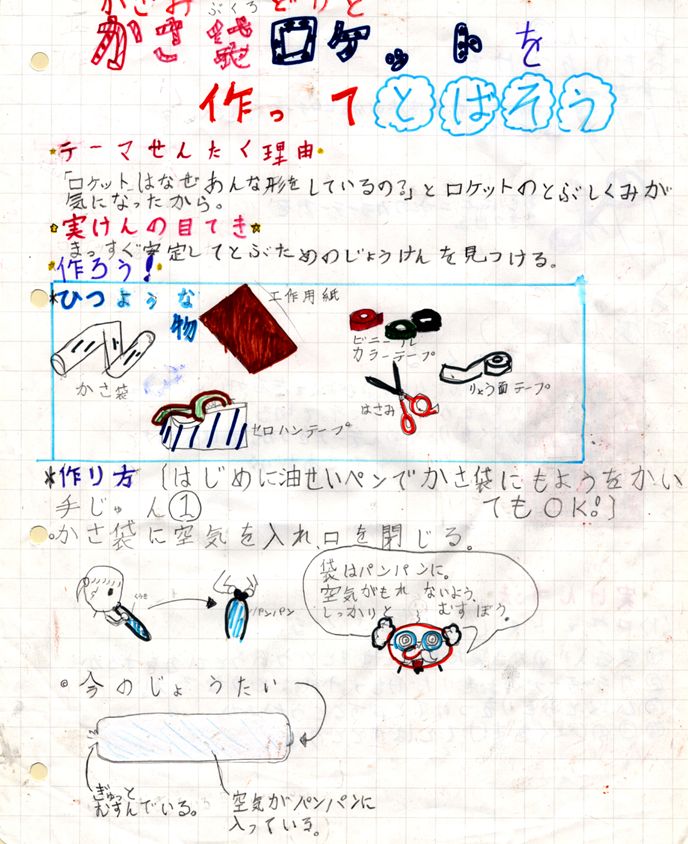 ぶくろ
かさ袋ロケットを
作ってとばそう
テーマせんたく理由
「ロケットはなぜあんな形をしているの?」とロケットのとぶしくみが
気になったから。
実けんの目てき
まっすぐ安定してとぶためのじょうけんを見つける。
作ろう!
*ひつような
物
工作用紙
ビニール
カラーテープ
かさ袋
はさみ
りょう面テープ
セロハンテープ
*作り方〔はじめに油せいペンでかさ袋にもようをかい
てもOK!〕
手じゅん①
かさ袋に空気を入れ、口を閉じる。
袋はパンパンに。
空気がもれないよう、
しっかりとむすぼう。
パンパン
今のじょうたい
ぎゅっと
むすんでいる。
空気がパンパンに
入っている。